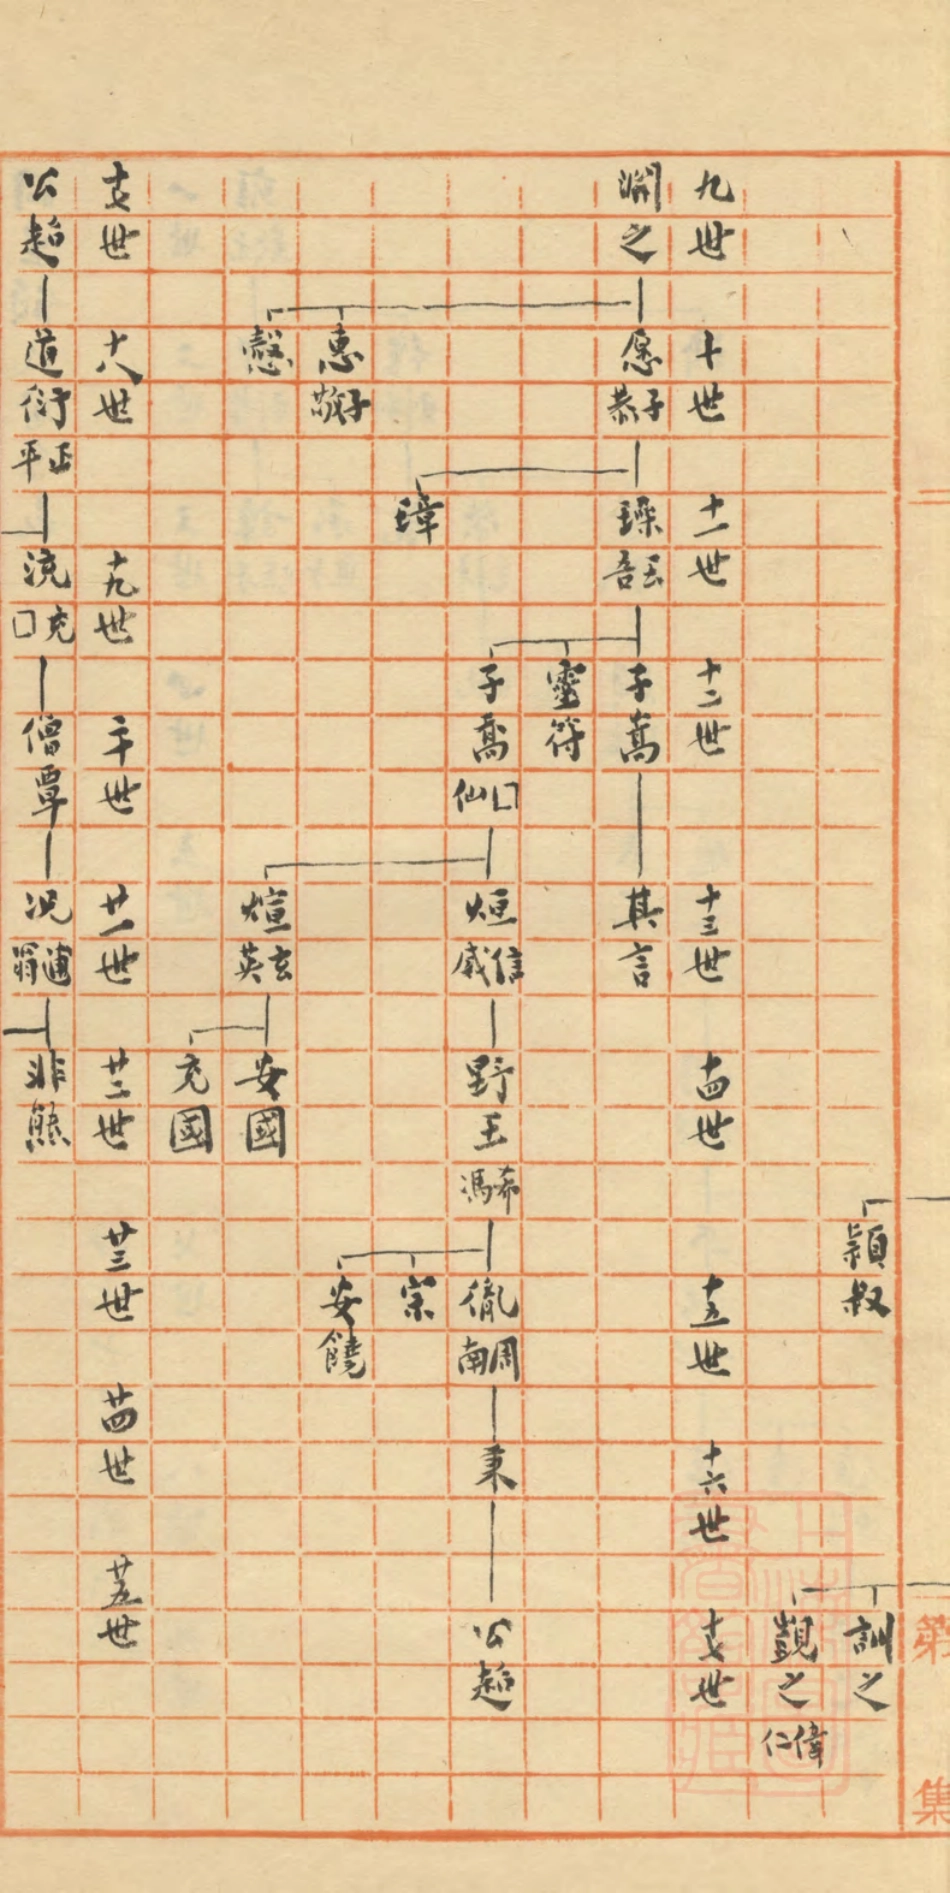 穎叔
訓之
覬之 偉仁
九世 十世 十一世 十二世 十三世 十四世 十五世 十六世 十七世
淵之 愿 子恭 璪 玉吾 子嵩 其言
靈符
子喬 □仙 烜 信威 野王 希馮 胤 周南 秉 公超
璋 宗
惠 子敬 安饒
愨 煊 玄英 安國
充國
十七世 十八世 十九世 二十世 廿一世 廿二世 廿三世 廿四世 廿五世
公超 道衍 正平 流 充□ 僧覃 况 逋翁 非熊
二
第
集